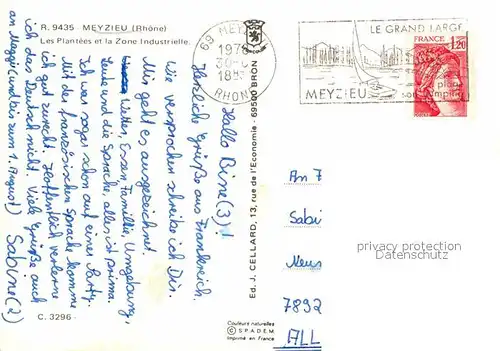 R. 9435 - MEYZIEU (Rhône)
Les Plantées et la Zone Industrielle.
Hallo Bine(3)!
Herzlich Grüße aus Frankreich.
Wie versprochen schreibe ich Dir.
Mir geht es ausgezeichnet.
Leute und die Sprache, alles ist prima.
Wetter, Essen, Familie, Umgebung,
Ich war sogar schon auf einer Party.
Mit der französischen Sprache komme
ich gut zurecht. Hoffentlich verlerne
ich das Deutsch nicht. Viele Grüße auch
an Maggie (und bis zum 1. August)
Sabine(2)
C. 3296 -
Ed. J. CELLARD, 13, rue de l'Economie - 69500 BRON
Couleurs naturelles
© SPADEM
Imprimé en France
69 MEYZIEU
1978
18H
RHONE
LE GRAND LARGE
MEYZIEU
son
plan
camping
1,20
FRANCE
An F
Sabi
Neus
7892
ALL
privacy protection
Datenschutz